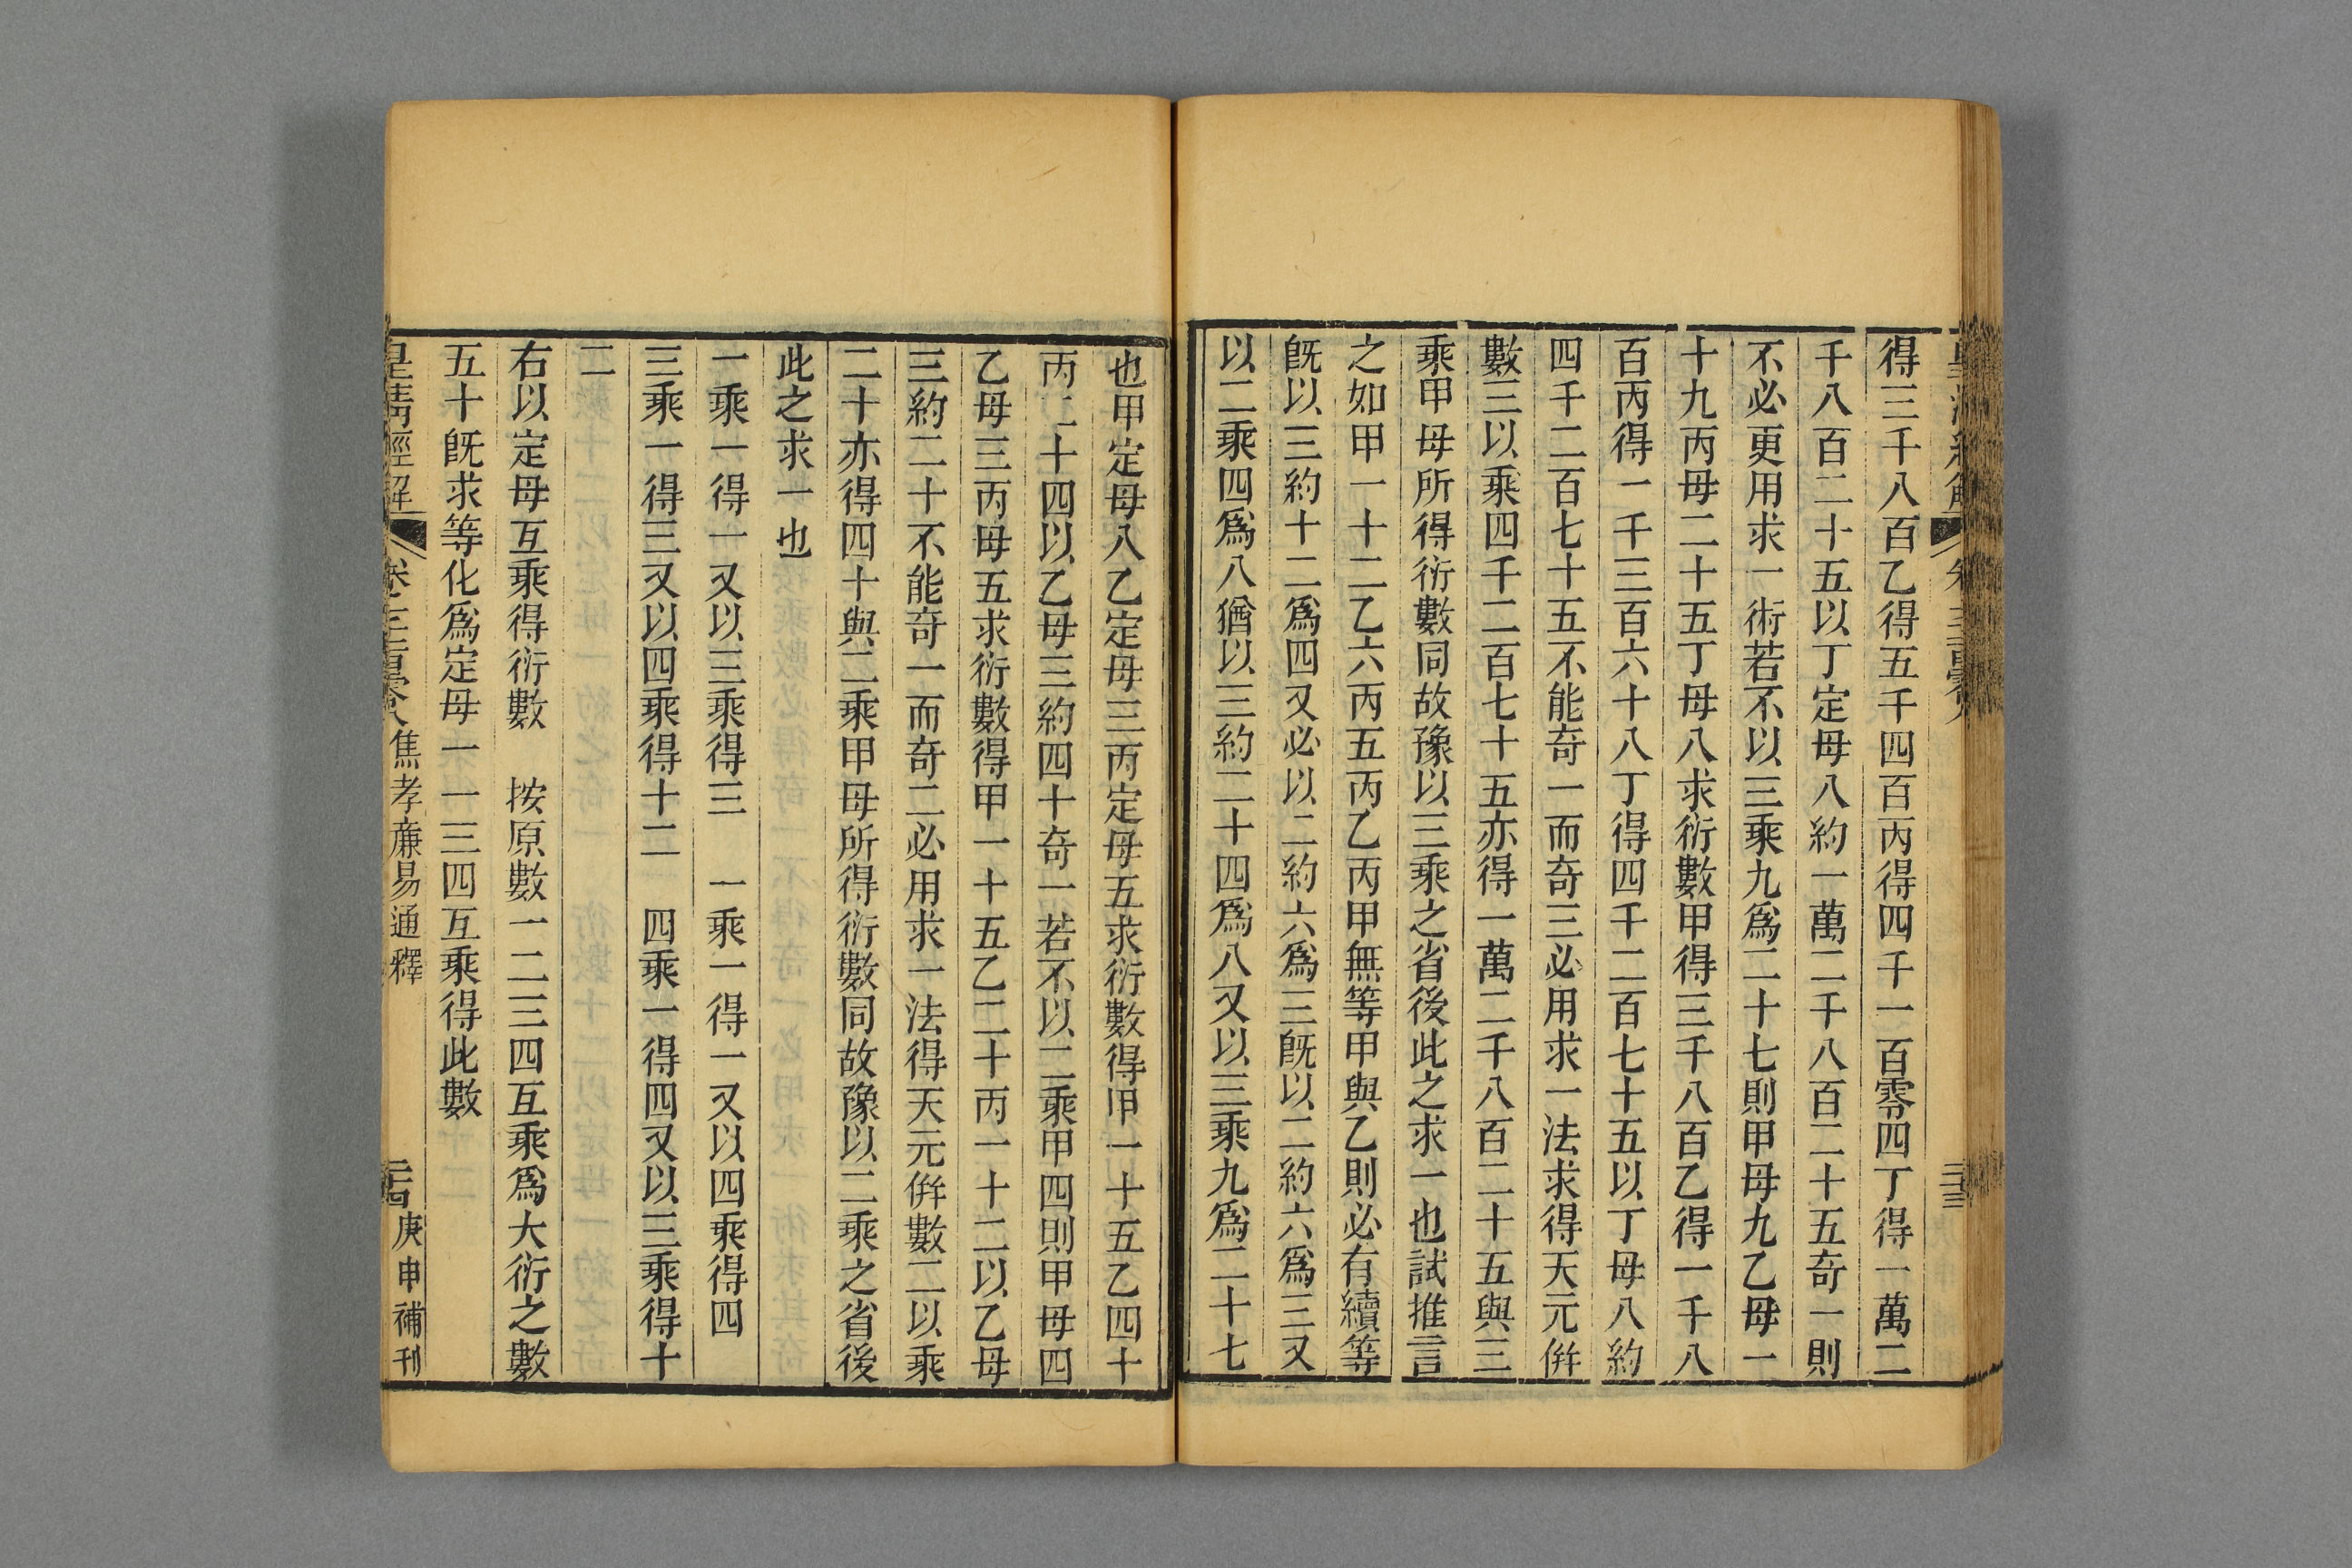 得三千八百乙得五千四百丙得四千一百零四丁得一萬二
千八百二十五以丁定母八約一萬二千八百二十五奇一則
不必更用求一術若不以三乘九爲二十七則甲母九乙母一
十九丙母二十五丁母八求衍數甲得三千八百乙得一千八
百丙得一千三百六十八丁得四千二百七十五以丁母八約
四千二百七十五不能奇一而奇三必用求一法求得天元倂
數三以乘四千二百七十五亦得一萬二千八百二十五與三
乘甲母所得衍數同故豫以三乘之省後此之求一也試推言
之如甲一十二乙六丙五丙乙丙甲無等甲與乙則必有續等
旣以三約十二爲四又必以二約六爲三旣以二約六爲三又
以二乘四爲八猶以三約二十四爲八又以三乘九爲二十七
也甲定母八乙定母三丙定母五求衍數得甲一十五乙四十
丙二十四以乙母三約四十奇一若不以二乘甲四則甲母四
乙母三丙母五求衍數得甲一十五乙二十丙一十二以乙母
三約二十不能奇一而奇二必用求一法得天元倂數二以乘
二十亦得四十與二乘甲母所得衍數同故豫以二乘之省後
此之求一也
一乘一得一又以三乘得三　一乘一得一又以四乘得四
三乘一得三又以四乘得十二　四乘一得四又以三乘得十
二
右以定母互乘得衍數　按原數一二三四互乘爲大衍之數
五十旣求等化爲定母一一三四互乘得此數
皇淸經解　卷一千一百零八　焦孝廉易通釋　二十四　庚申補刊